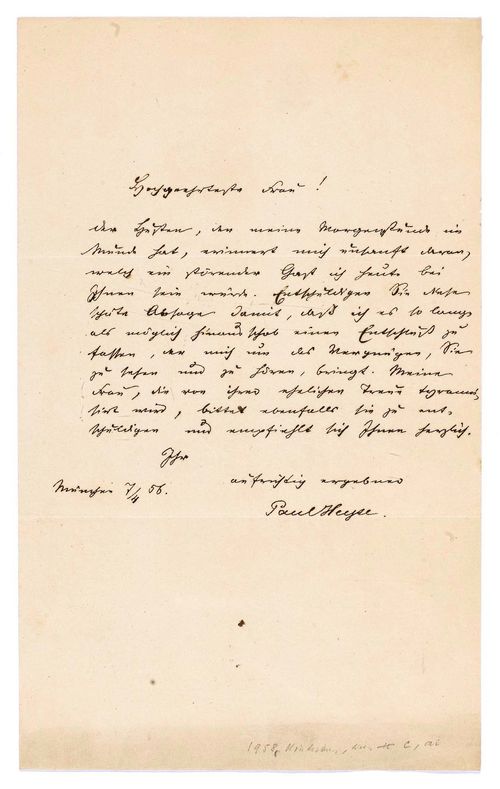 Hochgeehrteste Frau!
der Husten, den meine Morgenstunde im
Munde hat, erinnert mich unsanft daran,
welch ein störender Gast ich heute bei
Ihnen sein würde. Entschuldigen Sie diese
späte Absage damit, daß ich es so lange
als möglich hinausschob einen Entschluß zu
fassen, der mich um das Vergnügen, Sie
zu sehen und zu hören, bringt. Meine
Frau, die von ihrer ehelichen Treue tyranni
sirt wird, bittet ebenfalls sie zu ent-
schuldigen und empfiehlt sich Ihnen herzlich.
Ihr
aufrichtig ergebner
München 7/4 56.
Paul Heyse.
1958